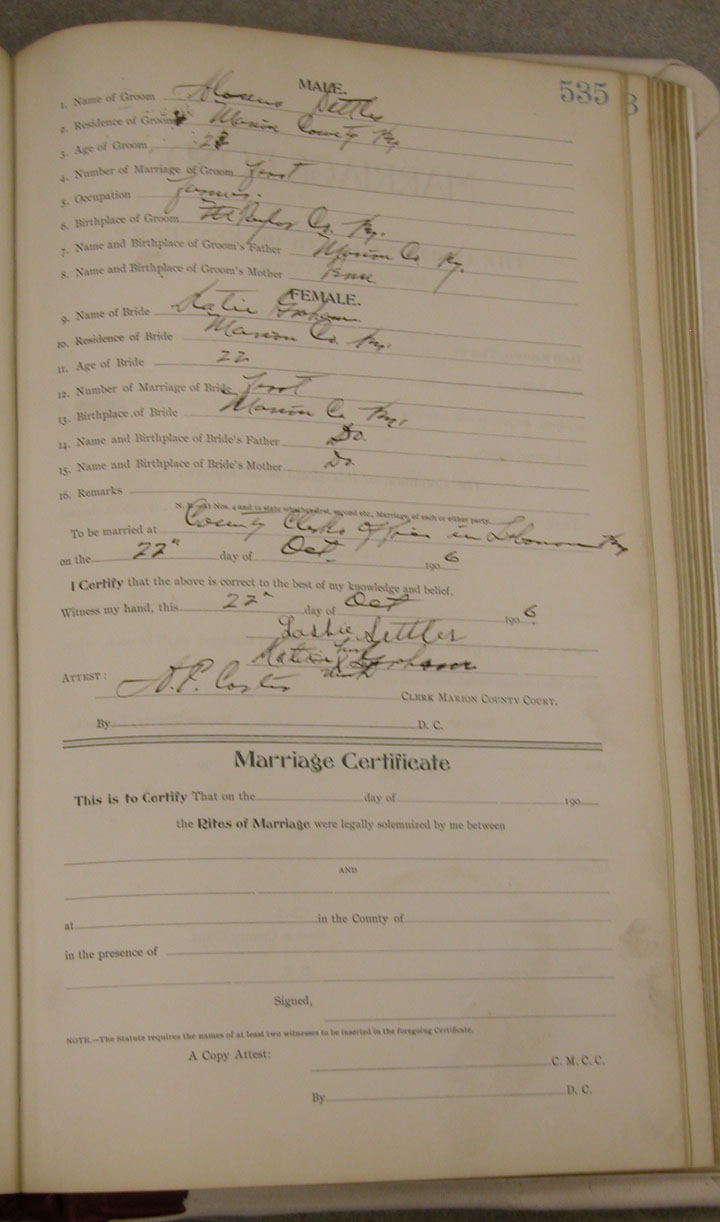 535
MALE.
1. Name of Groom Settles
2. Residence of Groom Marion County Ky
3. Age of Groom
4. Number of Marriage of Groom first
5. Occupation farmer.
6. Birthplace of Groom Taylor Co. Ky.
7. Name and Birthplace of Groom's Father Marion Co Ky.
8. Name and Birthplace of Groom's Mother
FEMALE.
9. Name of Bride Katie Graham
10. Residence of Bride Marion Co. Ky.
11. Age of Bride 22
12. Number of Marriage of Bride first
13. Birthplace of Bride Marion Co Ky.
14. Name and Birthplace of Bride's Father Do.
15. Name and Birthplace of Bride's Mother Do.
16. Remarks
N. B.—At Nos. 4 and 12 state whether first, second etc., Marriage, of each or either party.
To be married at County Clerks office in Lebanon Ky
on the 22" day of Oct 1906
I Certify that the above is correct to the best of my knowledge and belief.
Witness my hand, this 22" day of Oct 1906
Settler
Graham
ATTEST:
CLERK MARION COUNTY COURT.
By D. C.
Marriage Certificate
This is to Certify That on the day of 190
the Rites of Marriage were legally solemnized by me between
AND
at in the County of
in the presence of
Signed,
NOTE.—The Statute requires the names of at least two witnesses to be inserted in the foregoing Certificate.
A Copy Attest: C. M. C. C.
By D. C.